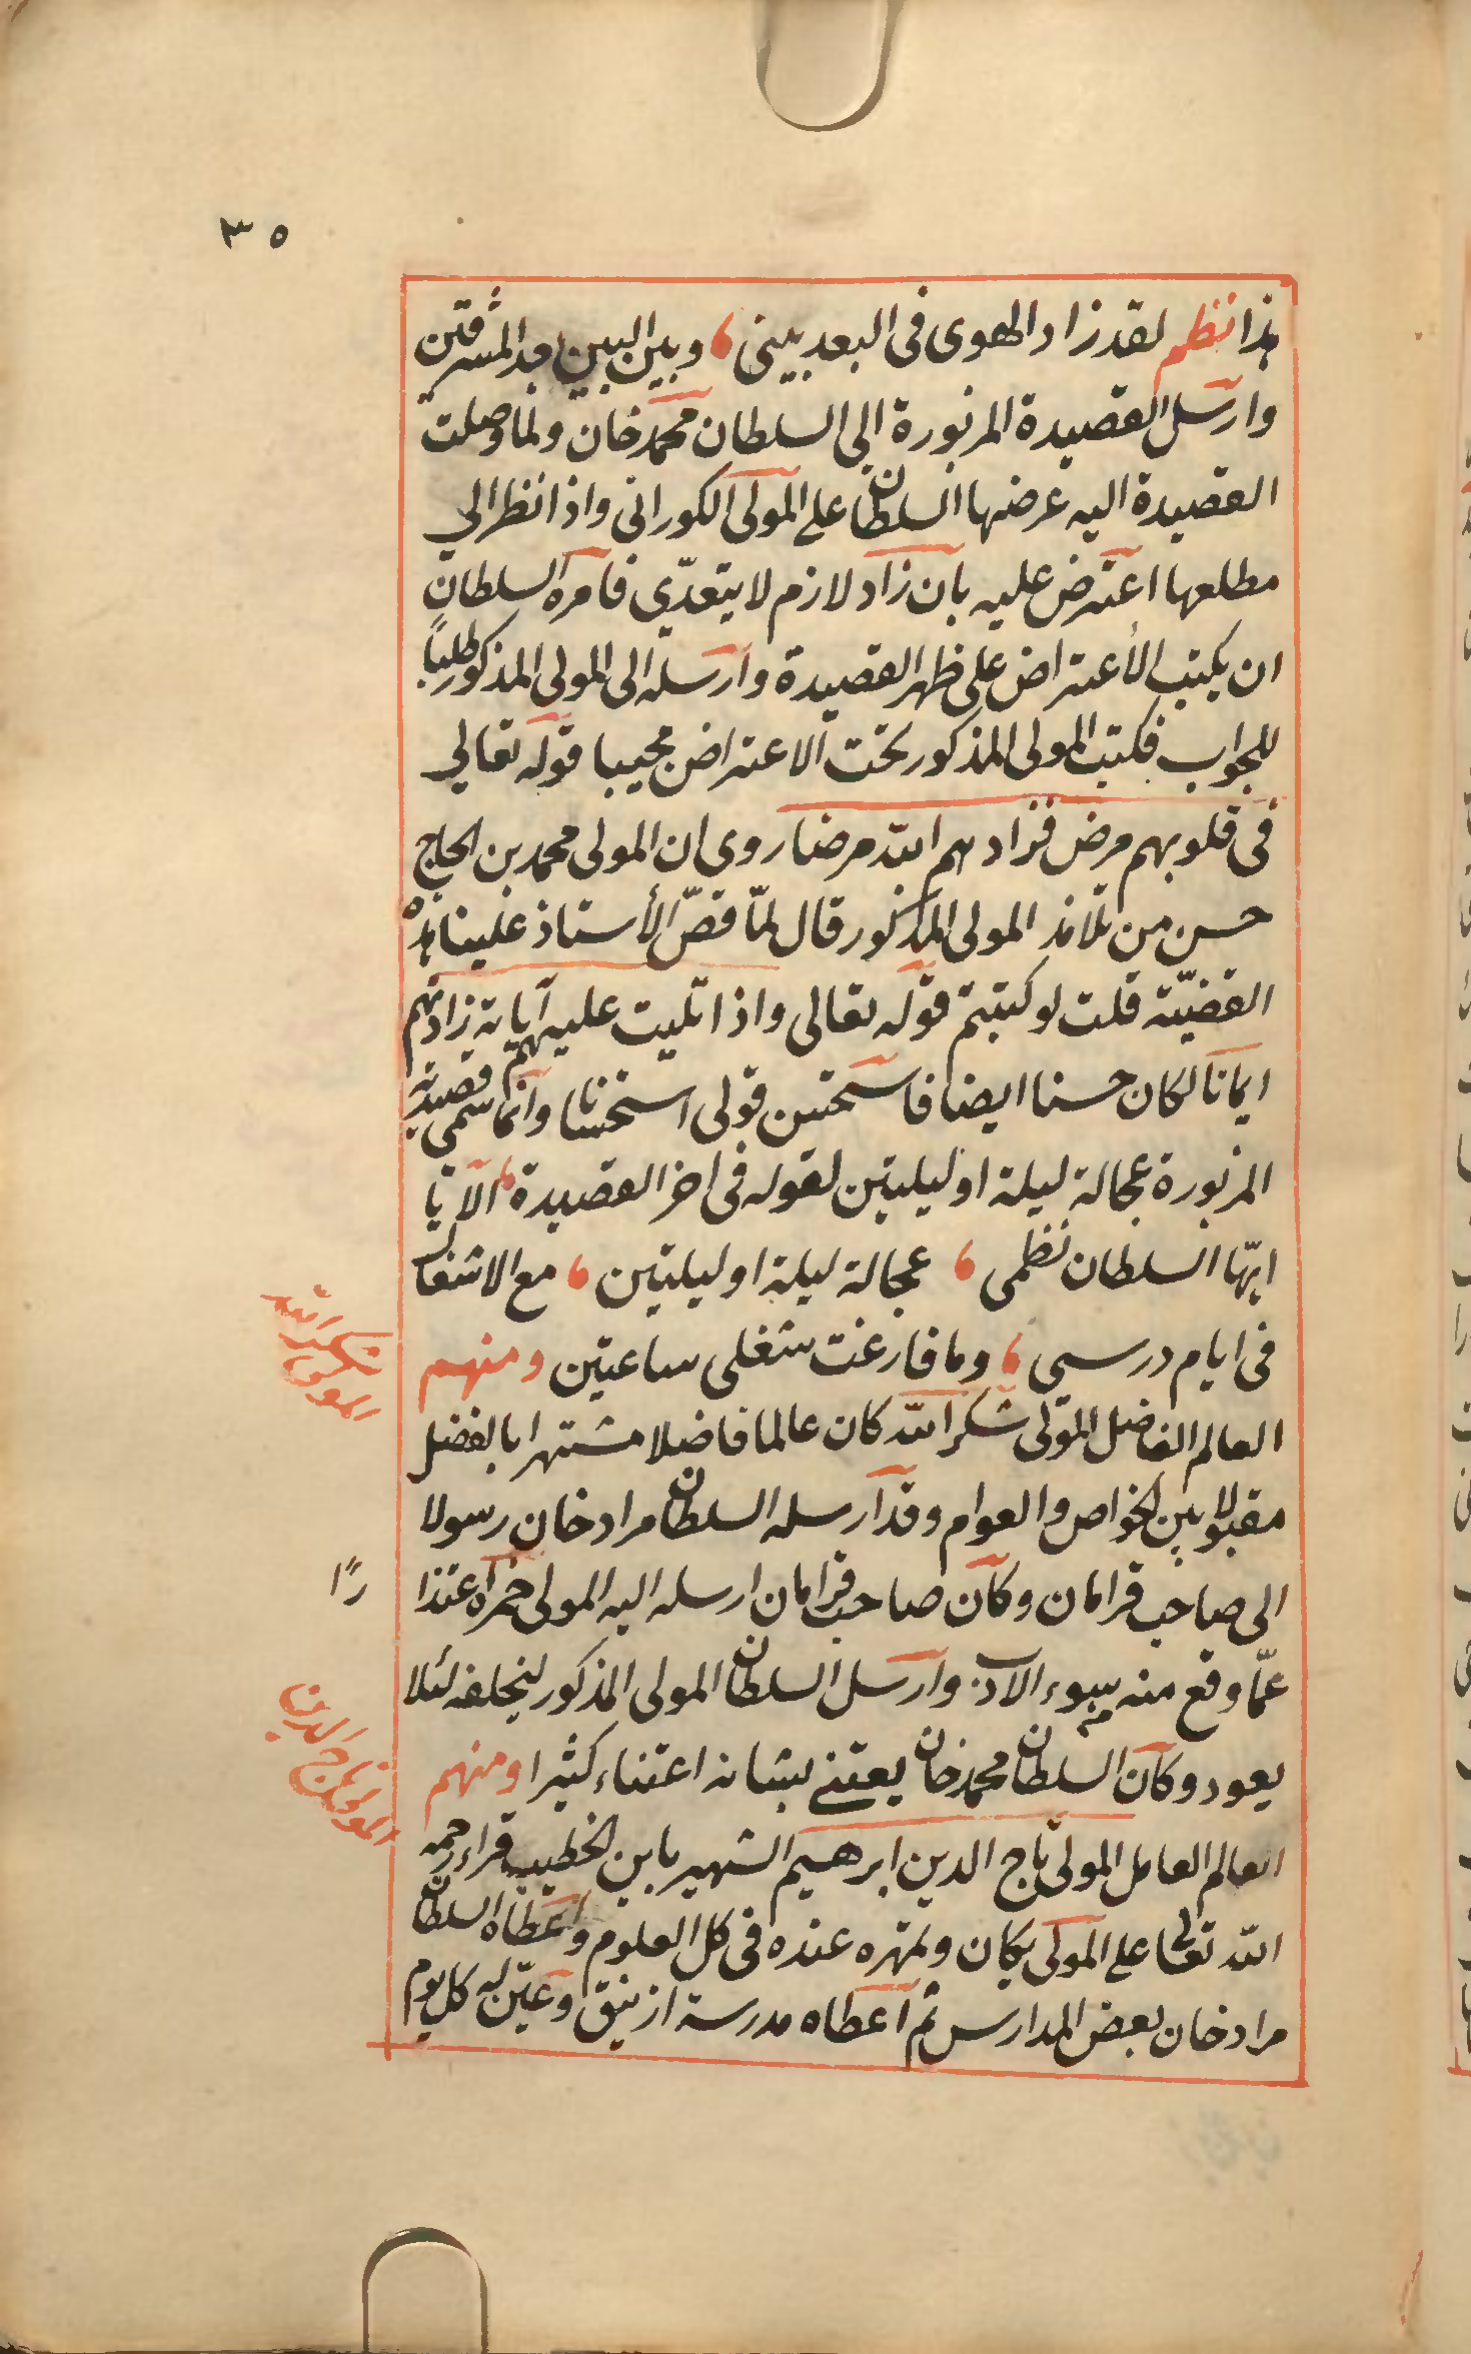 ٣٥
هذا نظم لقد زاد الهوى فى البعد بينى ، وبين البين بعد المشرقين
وارسل القصيدة المزبورة الى السلطان محمد خان ولما وصلت
القصيدة اليه عرضها السلطان على المولى الكورانى واذا نظر الى
مطلعها اعترض عليه بان زاد لازم لا يتعدّى فامره السلطان
ان يكتب الأعتراض على ظهر القصيدة وارسله الى المولى المذكور طلبًا
للجواب فكتب المولى المذكور تحت الاعتراض مجيبا قوله تعالى
فى قلوبهم مرض فزادهم الله مرضا روى ان المولى محمد بن الحاج
حسن من تلامذ المولى المذكور قال لمّا قصّ الأستاذ علينا هذه
القضيّة قلت لو كتبتم قوله تعالى واذا تليت عليهم آياته زادتهم
ايمانا لكان حسنا ايضا فاستحسن قولى استحسانا وانما سمى قصيدته
المزبورة عجالة ليلة او ليلتين لقوله فى اخر القصيدة ، الا يا
ايّها السلطان نظمى ، عجالة ليلة او ليلتين ، مع الاشغال
فى ايام درسى ، وما فارغت شغلى ساعتين ومنهم
المولى شكر الله
العالم الفاضل المولى شكر الله كان عالما فاضلا مشتهرا بالفضل
مقبولا بين الخواص والعوام وقد ارسله السلطان مراد خان رسولا
الى صاحب قرامان وكان صاحب قرامان ارسله اليه المولى حمزه اعتذا
رًا
عمّا وقع منه سوء الادب وارسل السلطان المولى المذكور ليحلفه لئلا
يعود وكان السلطان محمد خان يعتنى بشانه اعتناء كثيرا ومنهم
المولى تاج الدين
العالم العامل المولى تاج الدين ابرهيم الشهير بابن الخطيب قراء رحمه
الله تعالى على المولى يكان وتمهره عنده فى كل العلوم واعطاه السلطان
مراد خان بعض المدارس ثم اعطاه مدرسة ازنيق وعيّن له كل يوم